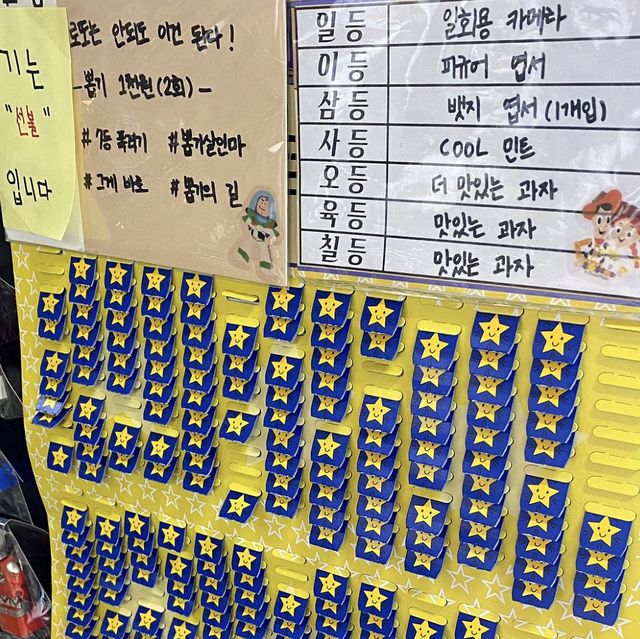 기는
"선불"
입니다
로또는 안되도 이건 된다!
-뽑기 1천원(2회)-
#7등 폭격기 #뽑기살인마
#그게 바로 #뽑기의 길
일등 일회용 카메라
이등 피규어 엽서
삼등 뱃지 엽서(1개입)
사등 COOL 민트
오등 더 맛있는 과자
육등 맛있는 과자
칠등 맛있는 과자